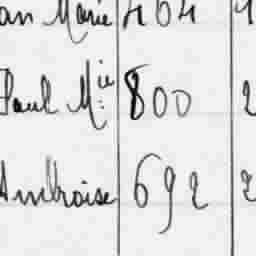 an Marie 464
Paul Mie 800 2
Ambroise 692 2